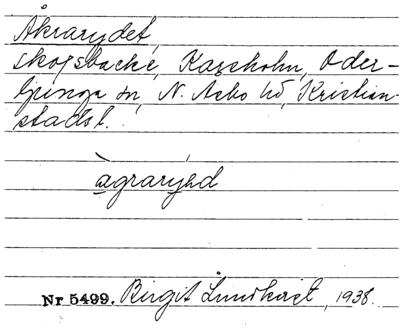 Åkrarydet,
skogsbacke, Kaxeholm, Oder-
ljunga sn, N. Åsbo hd, Kristian-
stads l.
àgrarýəd
Nr 5499. Birgit Lundkvist, 1938.